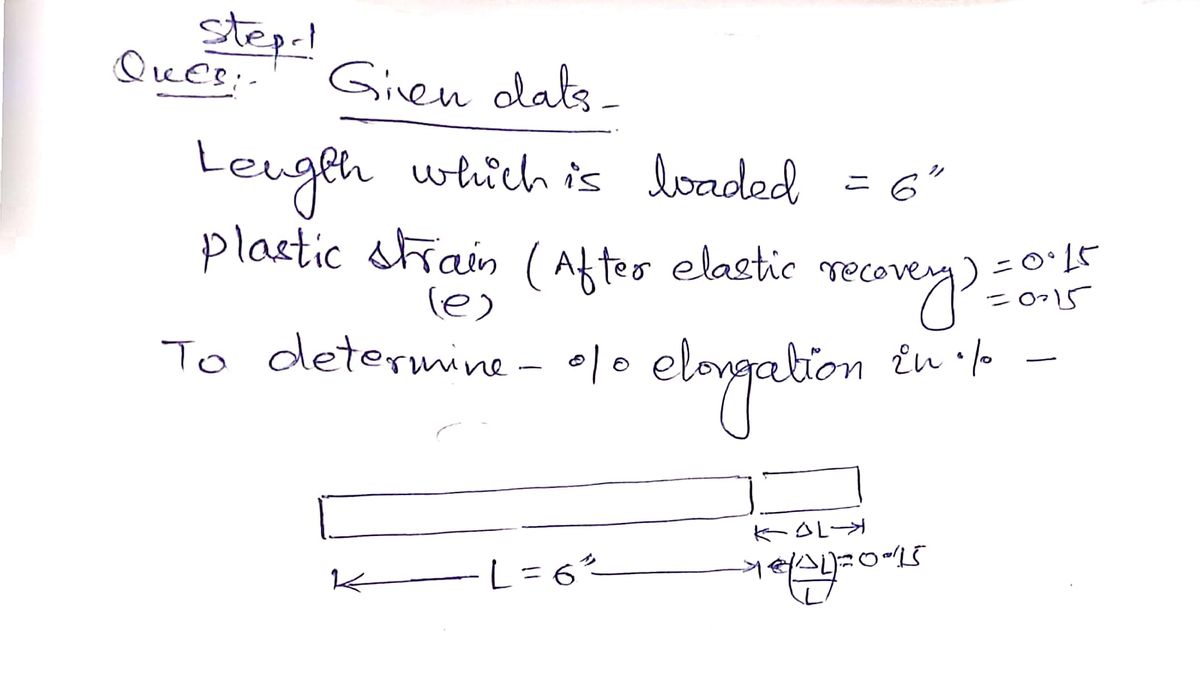 Step-1
Ques:- Given data -
Length which is loaded = 6"
plastic strain (After elastic recovery) = 0.15
(e) = 0.15
To determine - % elongation in % -
ΔL
L = 6" e(ΔL/L) = 0.15